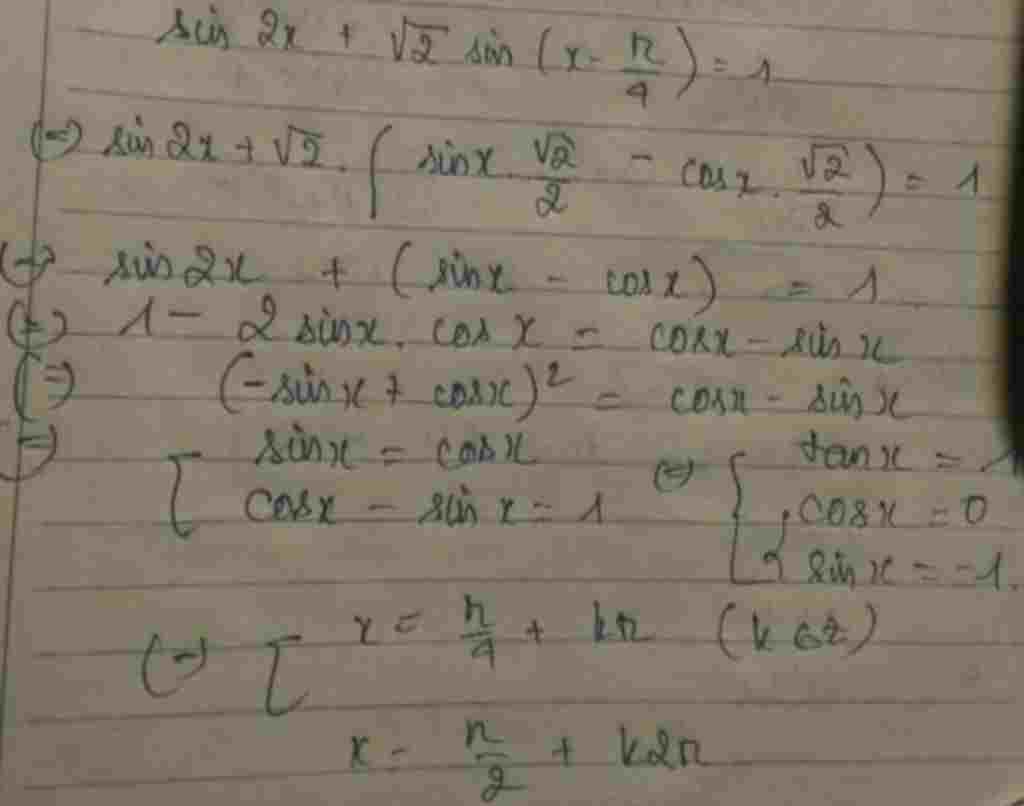 sin 2x + √2 sin (x - π/4) = 1
(=) sin 2x + √2 . ( sinx . √2/2 - cosx . √2/2 ) = 1
(=) sin 2x + ( sinx - cosx ) = 1
(=) 1 - 2 sinx . cos x = cosx - sin x
(=) (-sin x + cosx)² = cosx - sin x
(=) [ sinx = cosx (=) [ tanx = 1
cosx - sin x = 1 { cosx = 0
sin x = -1.
(=) [ x = π/4 + kπ (k ∈ z)
x = π/2 + k2π